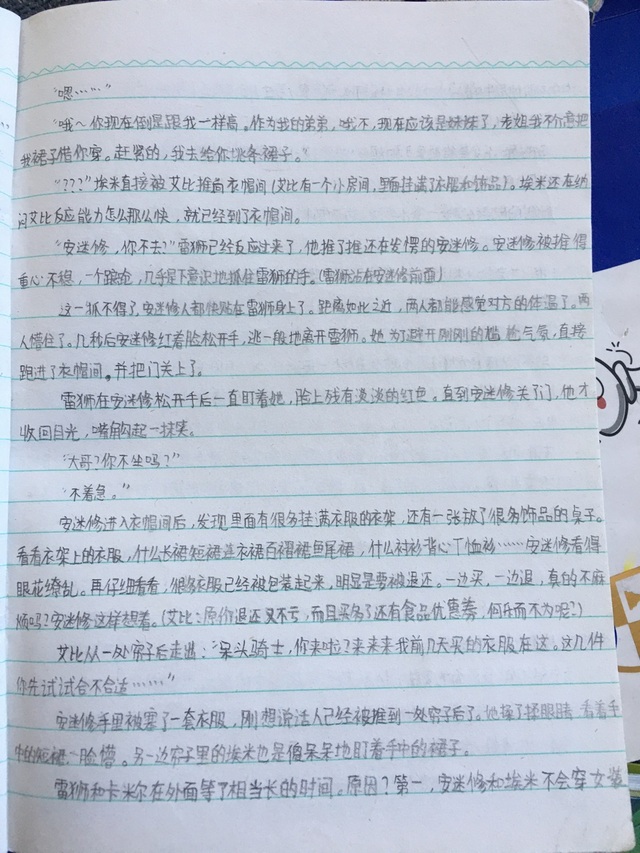 “嗯……”
“哦～你现在倒是跟我一样高。作为我的弟弟，哦不，现在应该是妹妹了，老姐我不介意把
我裙子借你穿。赶紧的，我去给你挑条裙子。”
“???”埃米直接被艾比推向衣帽间(艾比有一个小房间，里面挂满了衣服和饰品)。埃米还在纳
闷艾比反应能力怎么那么快，就已经到了衣帽间。
“安迷修，你不去?”雷狮已经反应过来了，他推了推还在发愣的安迷修。安迷修被推得
重心不稳，一个踉跄，几乎是下意识地抓住雷狮的手。(雷狮站在安迷修前面)
这一抓不得了，安迷修人都快贴在雷狮身上了。距离如此之近，两人都能感觉对方的体温了。两
人懵住了。几秒后安迷修红着脸松开手，逃一般地离开雷狮。她为了避开刚刚的尴尬气氛，直接
跑进了衣帽间，并把门关上了。
雷狮在安迷修松开手后一直盯着她，脸上残有淡淡的红色。直到安迷修关了门，他才
收回目光，嘴角勾起一抹笑。
“大哥?你不坐吗?”
“不着急。”
安迷修进入衣帽间后，发现里面有很多挂满衣服的衣架，还有一张放了很多饰品的桌子。
看看衣架上的衣服，什么长裙短裙连衣裙百褶裙鱼尾裙，什么衬衫背心T恤衫……安迷修看得
眼花缭乱。再仔细看看，很多衣服已经被包装起来，明显是要被退还。一边买，一边退，真的不麻
烦吗?安迷修这样想着。(艾比：原价退还又不亏，而且买多了还有食品优惠券，何乐而不为呢?)
艾比从一处帘子后走出：“呆头骑士，你来啦?来来来我前几天买的衣服在这。这几件
你先试试合不合适……”
安迷修手里被塞了一套衣服，刚想说话人已经被推到一处帘子后了。她揉了揉眼睛 看着手
中的短裙一脸懵。另一边帘子里的埃米也是傻呆呆地盯着手中的裙子。
雷狮和卡米尔在外面等了相当长的时间。原因?第一，安迷修和埃米不会穿女装